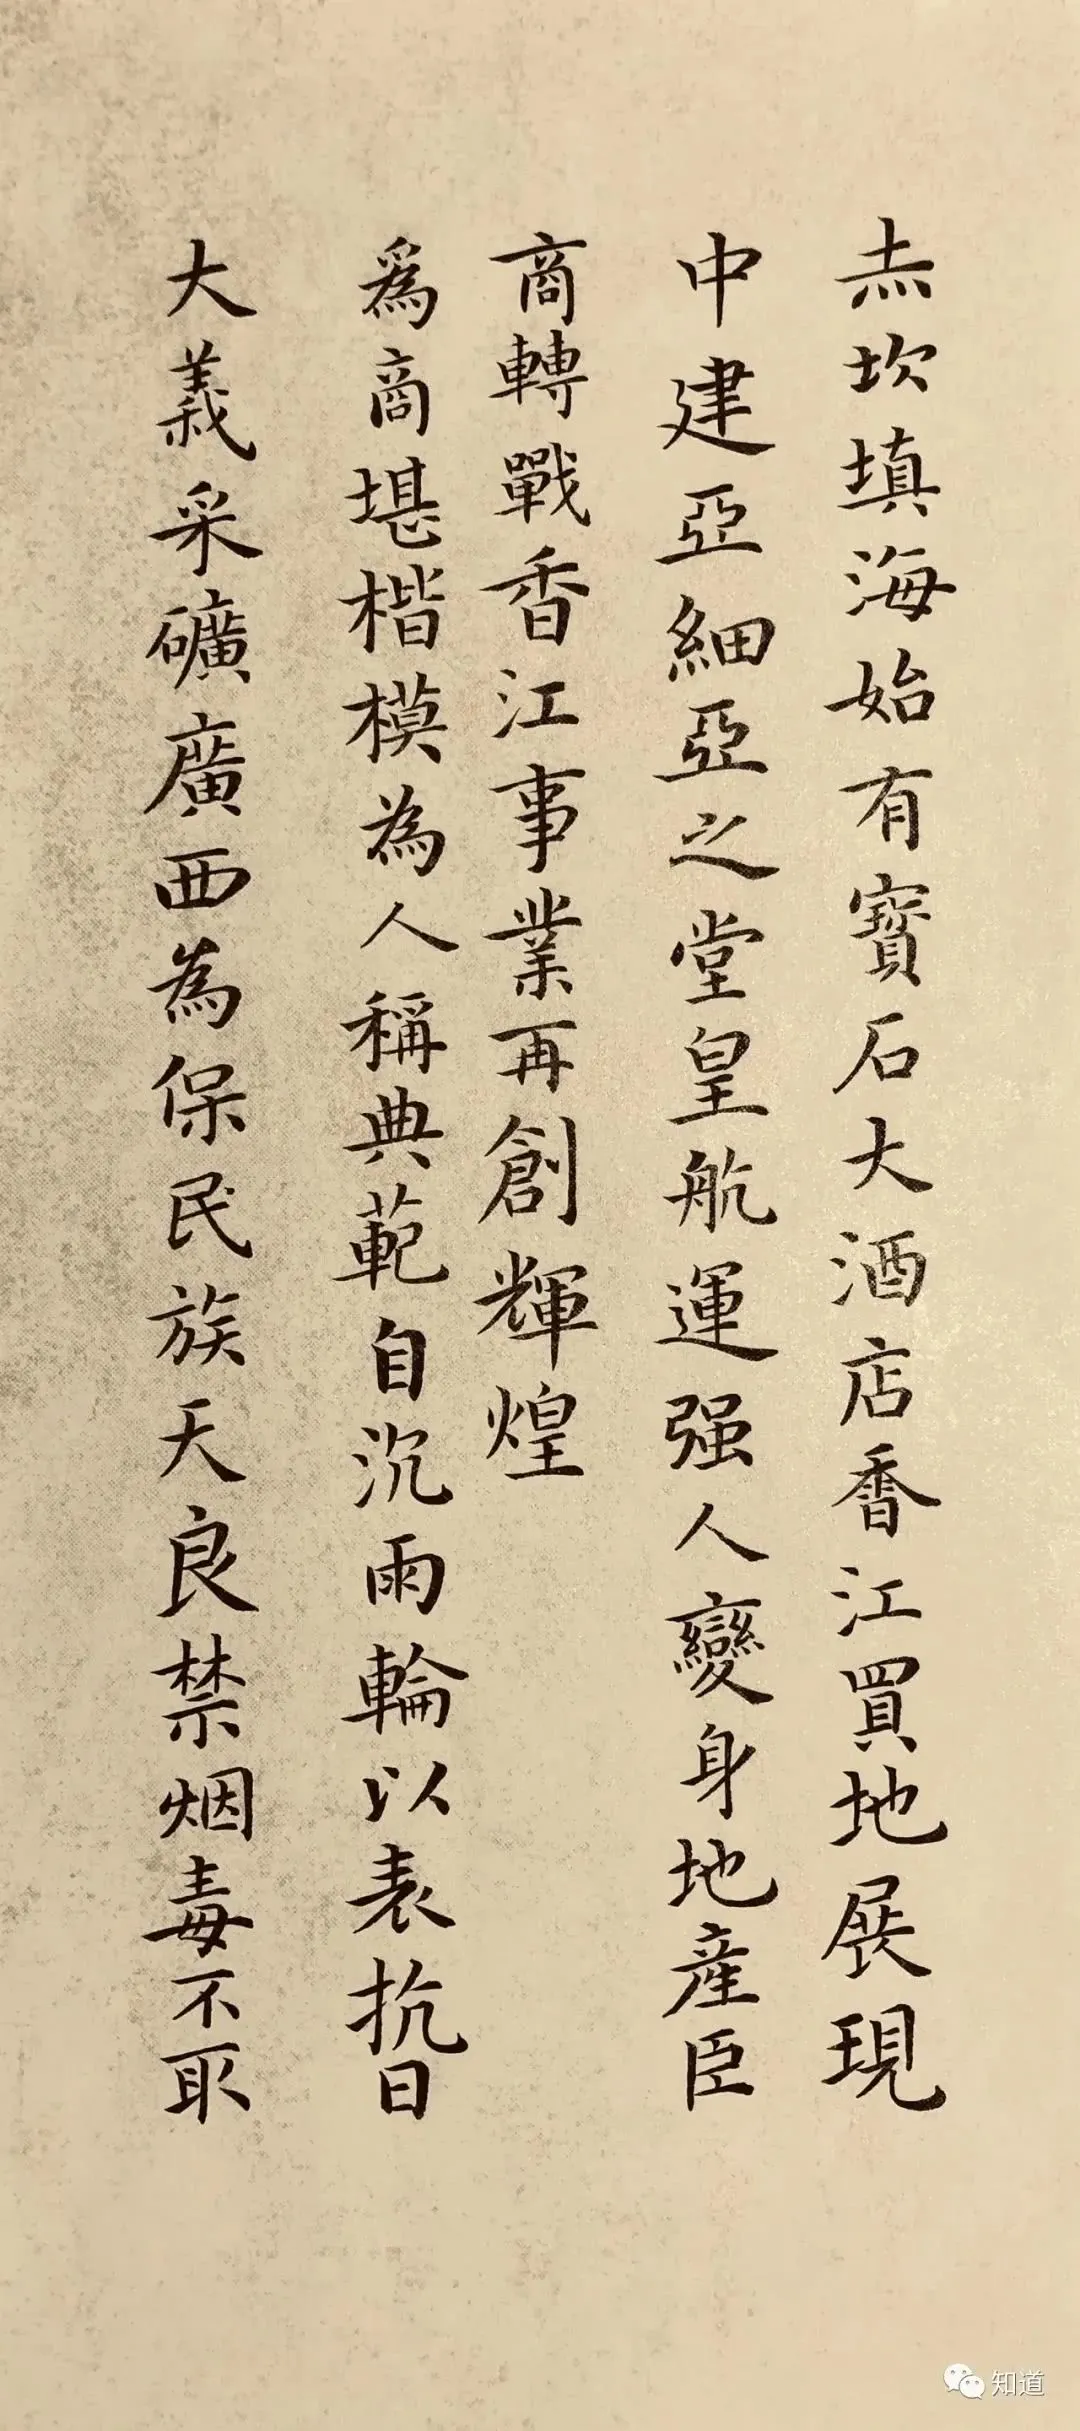 赤坎填海始有寳石大酒店香江買地展現
中建亞細亞之堂皇航運强人變身地産臣
商轉戰香江事業再創輝煌
爲商堪楷模為人稱典範自沉雨輪以表抗日
大義采礦廣西為保民族天良禁烟毒不取
知道